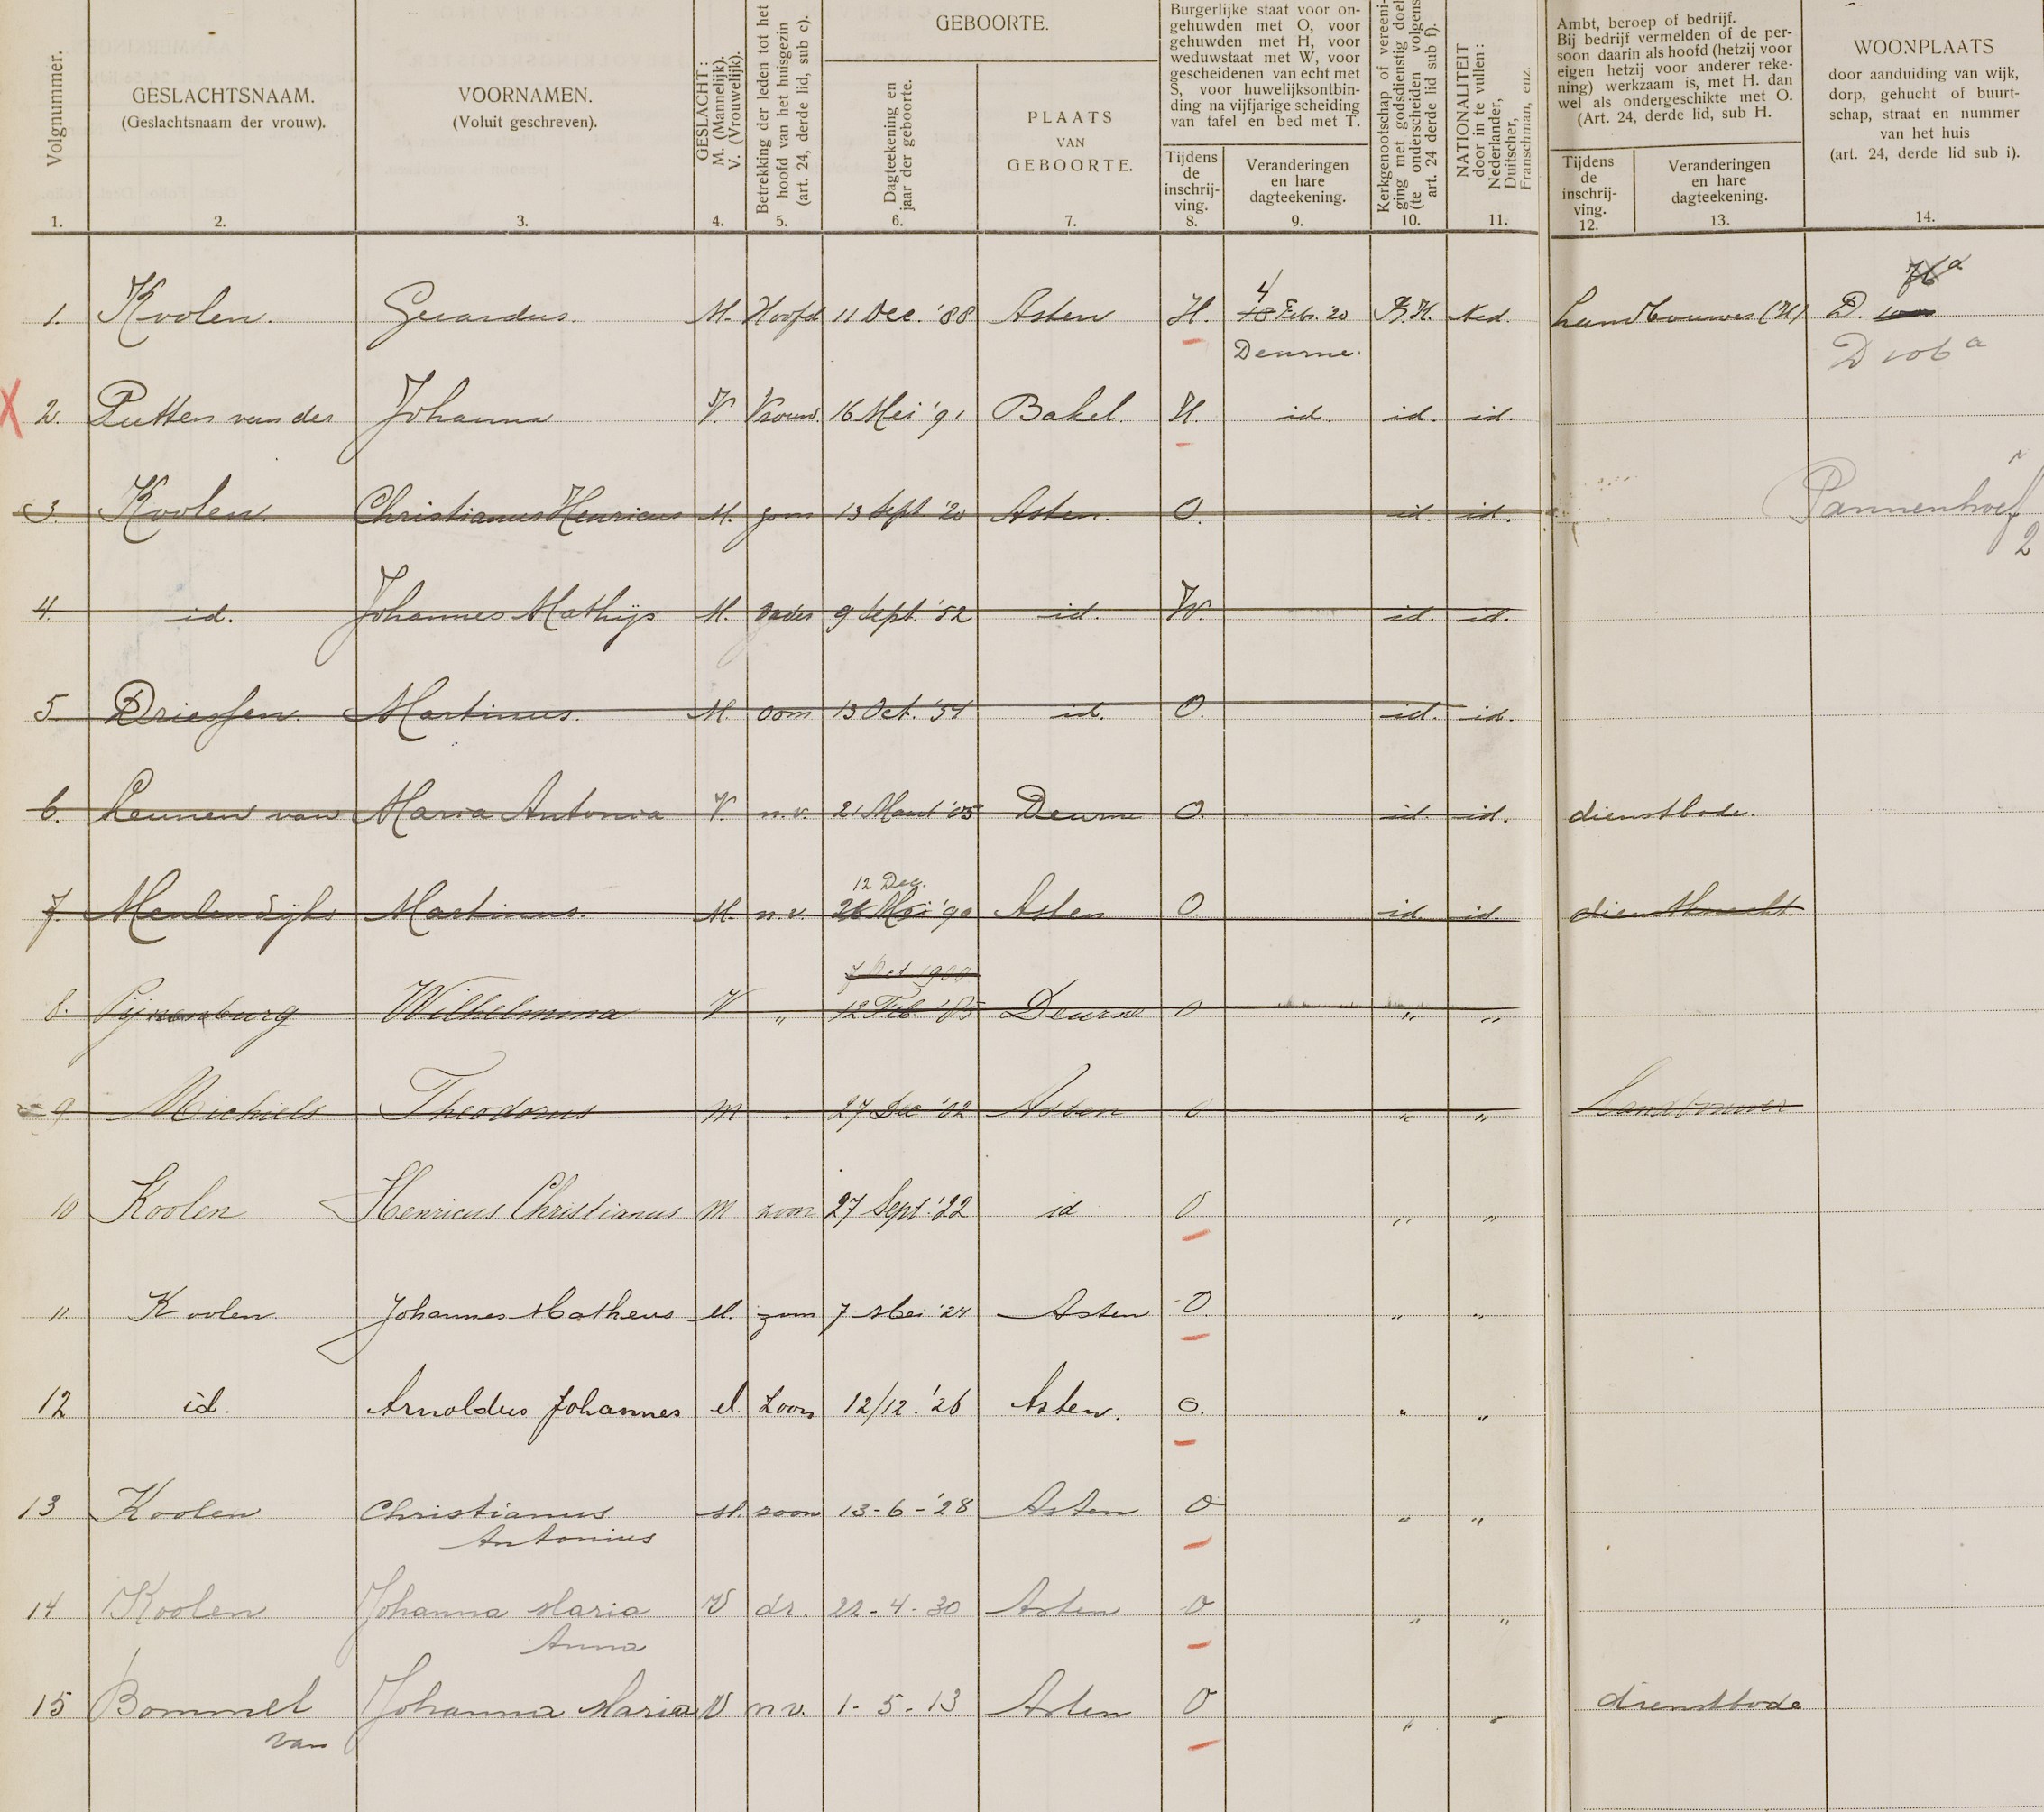 Volgnummer.
1.
GESLACHTSNAAM.
(Geslachtsnaam der vrouw).
2.
VOORNAMEN.
(Voluit geschreven).
3.
GESLACHT:
M. (Mannelijk).
V. (Vrouwelijk).
4.
Betrekking der leden tot het
hoofd van het huisgezin
(art. 24, derde lid, sub c).
5.
GEBOORTE.
Dagteekening en
jaar der geboorte.
6.
PLAATS
VAN
GEBOORTE.
7.
Burgerlijke staat voor on-
gehuwden met O, voor
gehuwden met H, voor
weduwstaat met W, voor
gescheidenen van echt met
S, voor huwelijksontbin-
ding na vijfjarige scheiding
van tafel en bed met T.
Tijdens
de
inschrij-
ving.
8.
Veranderingen
en hare
dagteekening.
9.
Kerkgenootschap of vereeni-
ging met godsdienstig doel
(te onderscheiden volgens
art. 24 derde lid sub f).
10.
NATIONALITEIT
door in te vullen:
Nederlander,
Duitscher,
Franschman, enz.
11.
Ambt, beroep of bedrijf.
Bij bedrijf vermelden of de per-
soon daarin als hoofd (hetzij voor
eigen hetzij voor anderer reke-
ning) werkzaam is, met H. dan
wel als ondergeschikte met O.
(Art. 24, derde lid, sub H.
Tijdens
de
inschrij-
ving.
12.
Veranderingen
en hare
dagteekening.
13.
WOONPLAATS
door aanduiding van wijk,
dorp, gehucht of buurt-
schap, straat en nummer
van het huis
(art. 24, derde lid sub i).
14.
76a
4
1. Koolen. Gerardus. M. Hoofd 11 Dec. '88 Asten H. 18 Feb. '20 R.K. Ned. Landbouwer (H) D.
Deurne. D 106 a
X 2. Putten van der Johanna V. Vrouw. 16 Mei '91 Bakel. H. id. id. id.
3. Koolen. Christianus Henricus M. zoon 13 Sept '20 Asten. O. id. id. Pannenhoef
2
4. id. Johannes Mathijs M. vader 9 Sept. '52 id. W. id. id.
5. Driessen. Martinus. M. oom 13 Oct. '54 id. O. id. id.
6. Leunen van Maria Antonia V. n.v. 21 Maart '05 Deurne O. id. id. dienstbode.
12 Dec.
7. Meulendijks Martinus. M. n.v. 26 Mei '90 Asten O. id. id. dienstknecht.
7 Oct 1900
8. Pijnenburg Wilhelmina V " 12 Feb '05 Deurne O " "
9 Michiels Theodorus M " 27 Dec '02 Asten O " " Landbouwer
10 Koolen Henricus Christianus M zoon 27 Sept. '22 id O " "
11. Koolen. Johannes Matheus M. zoon 7 Mei '24 Asten O. " "
12 id. Arnoldus Johannes M. Zoon 12/12.'26 Asten. O. " "
13 Koolen Christianus M. zoon 13-6-'28 Asten O " "
Antonius
14 Koolen Johanna Maria V dr. 22-4-30 Asten O " "
Anna
15 Bommel Johanna Maria V n v. 1-5-13 Asten O " " dienstbode
van